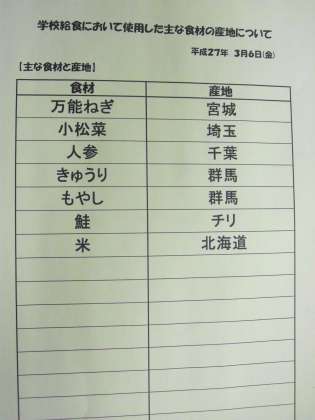 学校給食において使用した主な食材の産地について
平成27年 3月6日(金)
【主な食材と産地】
食材 産地
万能ねぎ 宮城
小松菜 埼玉
人参 千葉
きゅうり 群馬
もやし 群馬
鮭 チリ
米 北海道